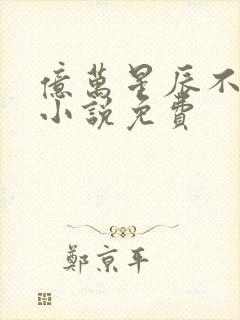 億萬星辰不
小說免費
鄭京平